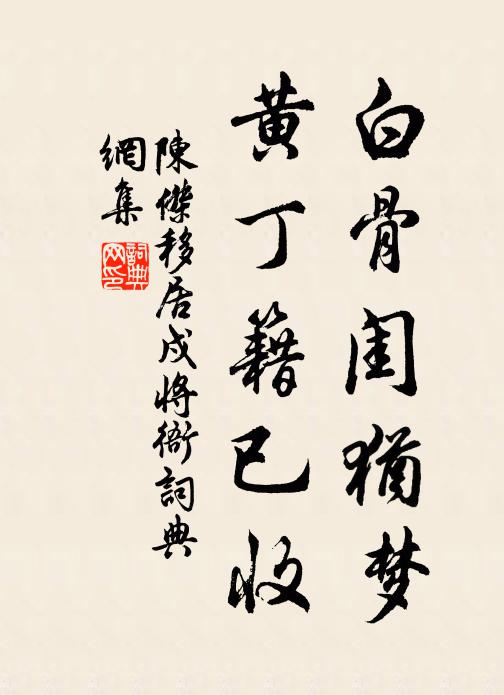 白骨闺犹梦
黄丁籍已收
陳傑移居戍將衙詞典
網集
詞典网印